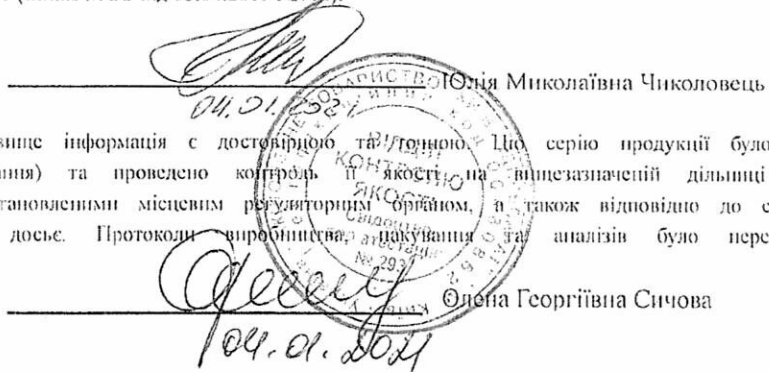 Юлія Миколаївна Чиколовець
04.01.2021
вище інформація є достовірною та точною. Цю серію продукції було
ння) та проведено контроль її якості на вищезазначеній дільниці
становленими місцевим регуляторним органом, а також відповідно до с
досьє. Протоколи виробництва, пакування та аналізів було пере
ВІДДІЛ
КОНТРОЛЮ
ЯКОСТІ
Свідоцтво
про атестацію
№ 293
Олена Георгіївна Сичова
04.01.2021